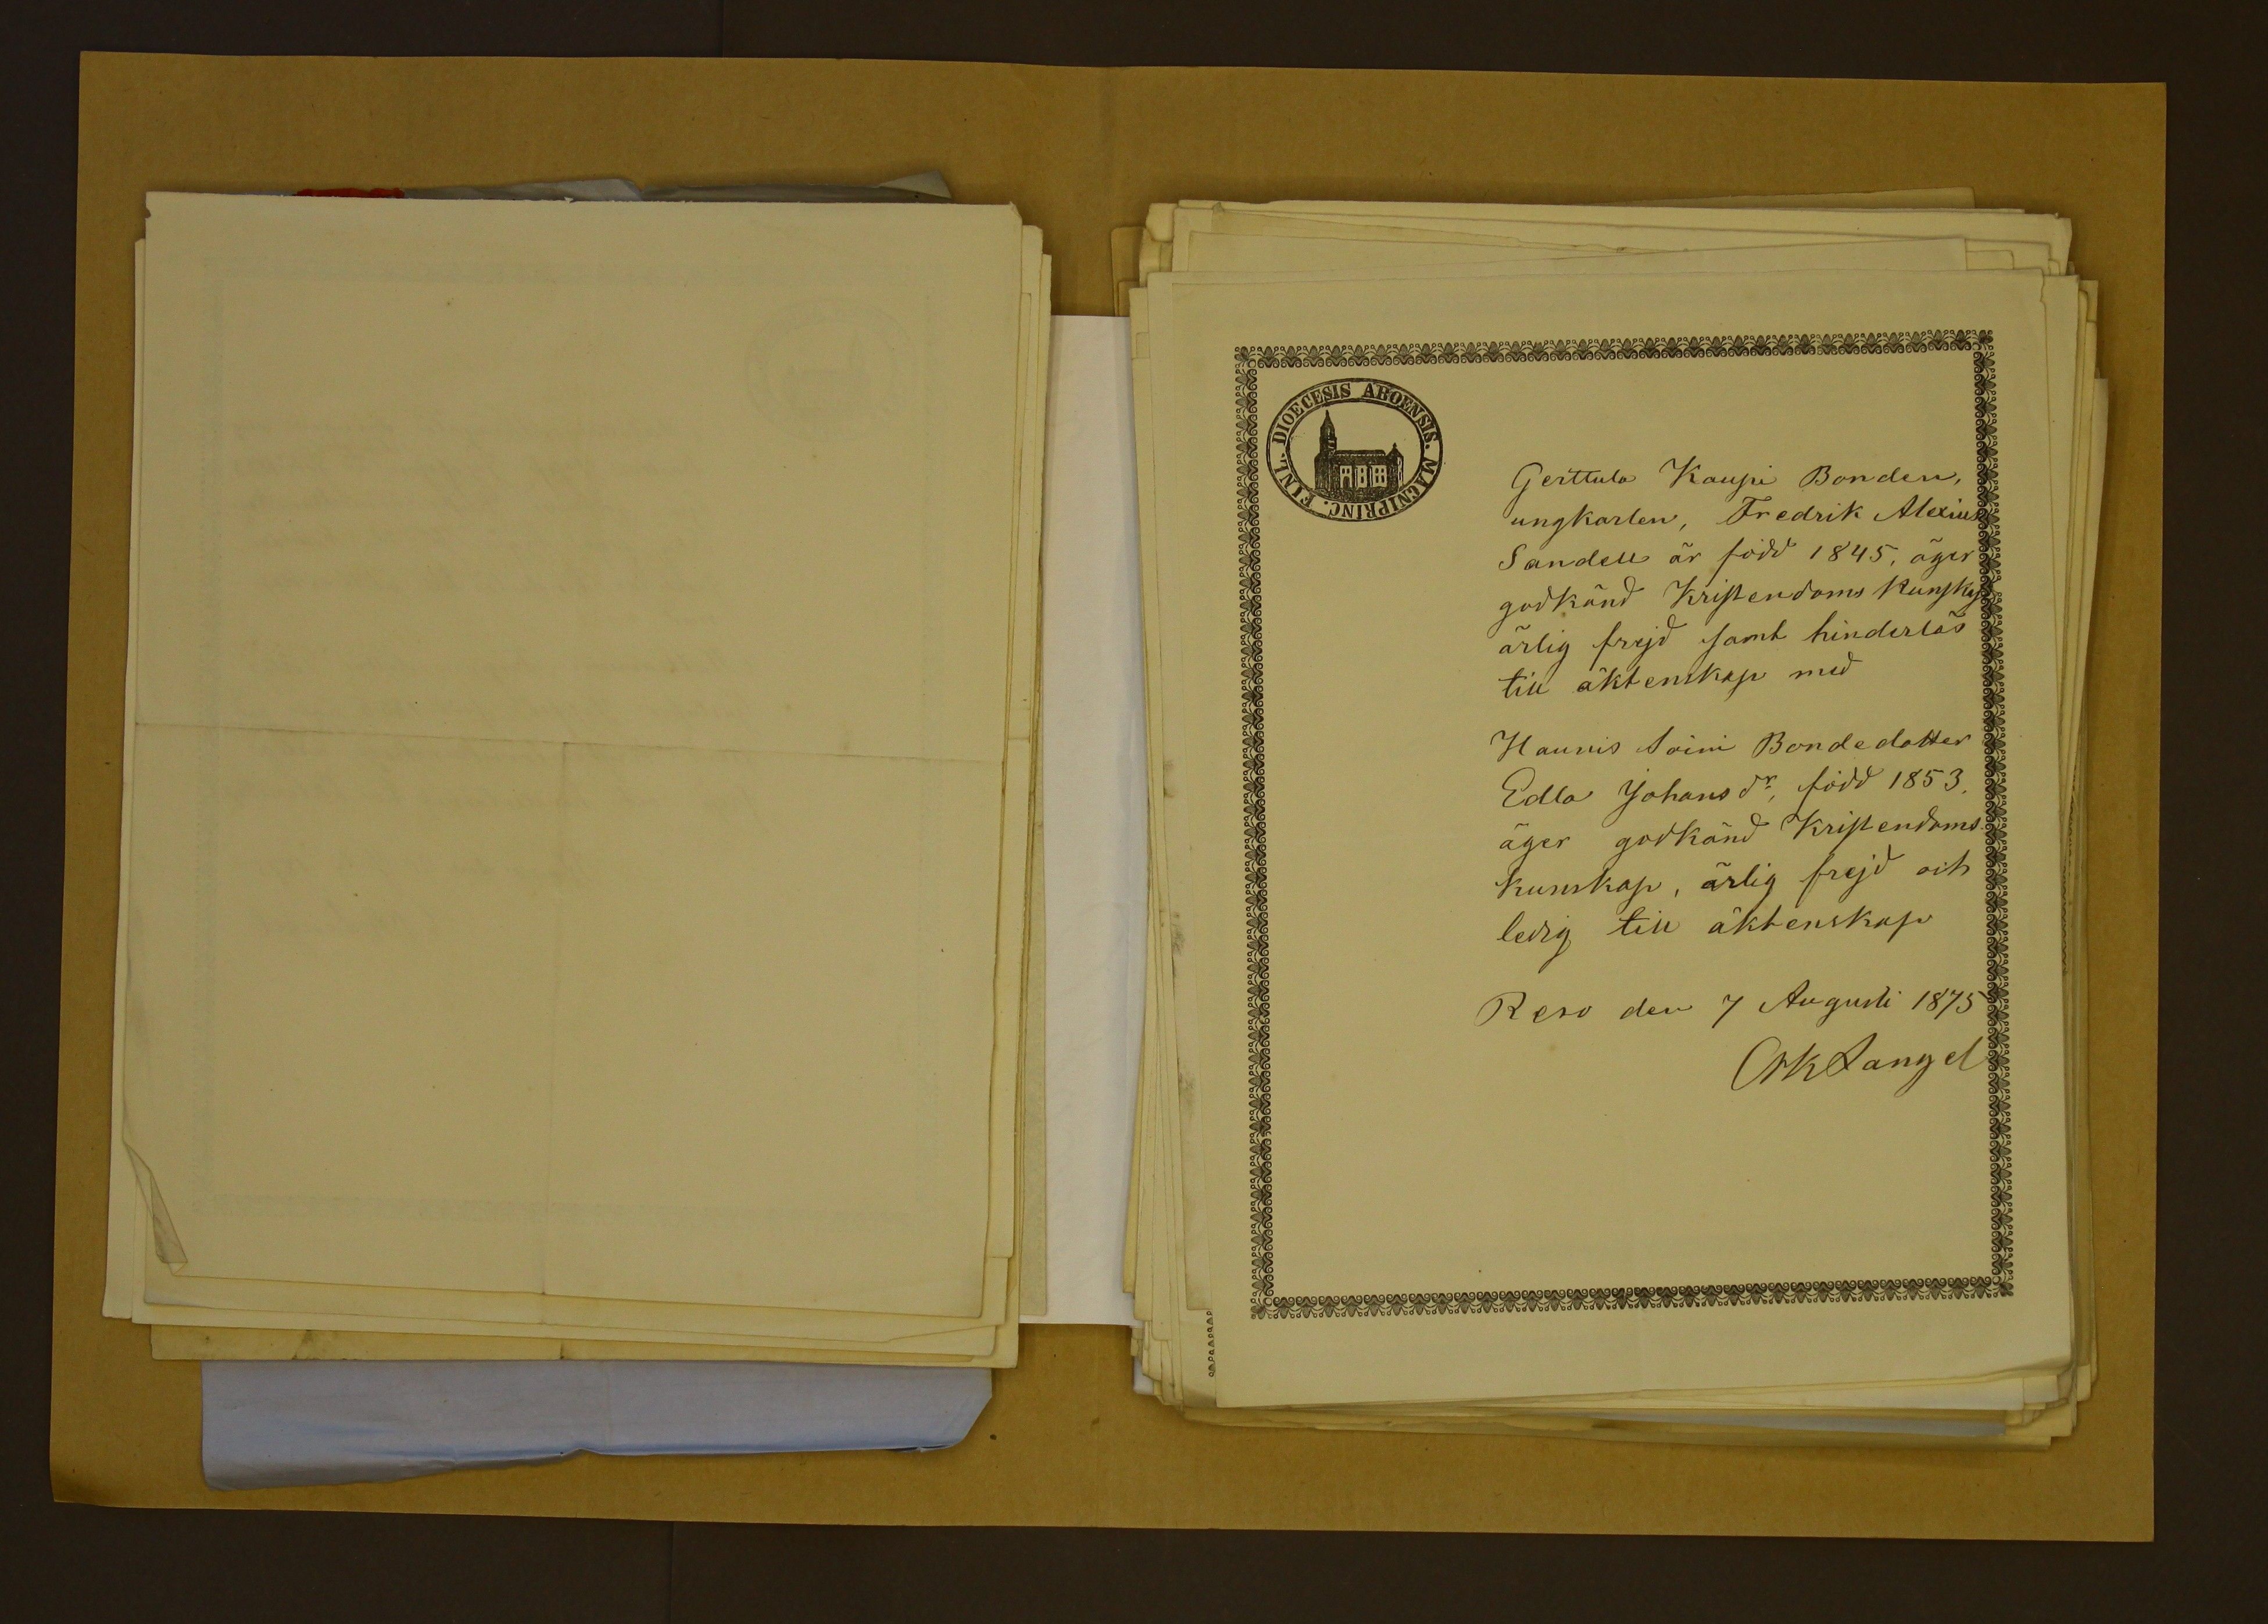 DIOECESIS ABOENSIS. MAGNIPRINC. FINL.
Gerttula Kaupi Bonden,
ungkarlen, Fredrik Alexius
Sandell är född 1845, äger
godkänd Kristendoms Kunskap
ärlig frejd samt hinderlös
till äktenskap med
Haunis Soini Bondedotter
Edla Johansdr, född 1853,
äger godkänd Kristendoms
kunskap, ärlig frejd och
ledig till äktenskap
Reso den 7 Augusti 1875